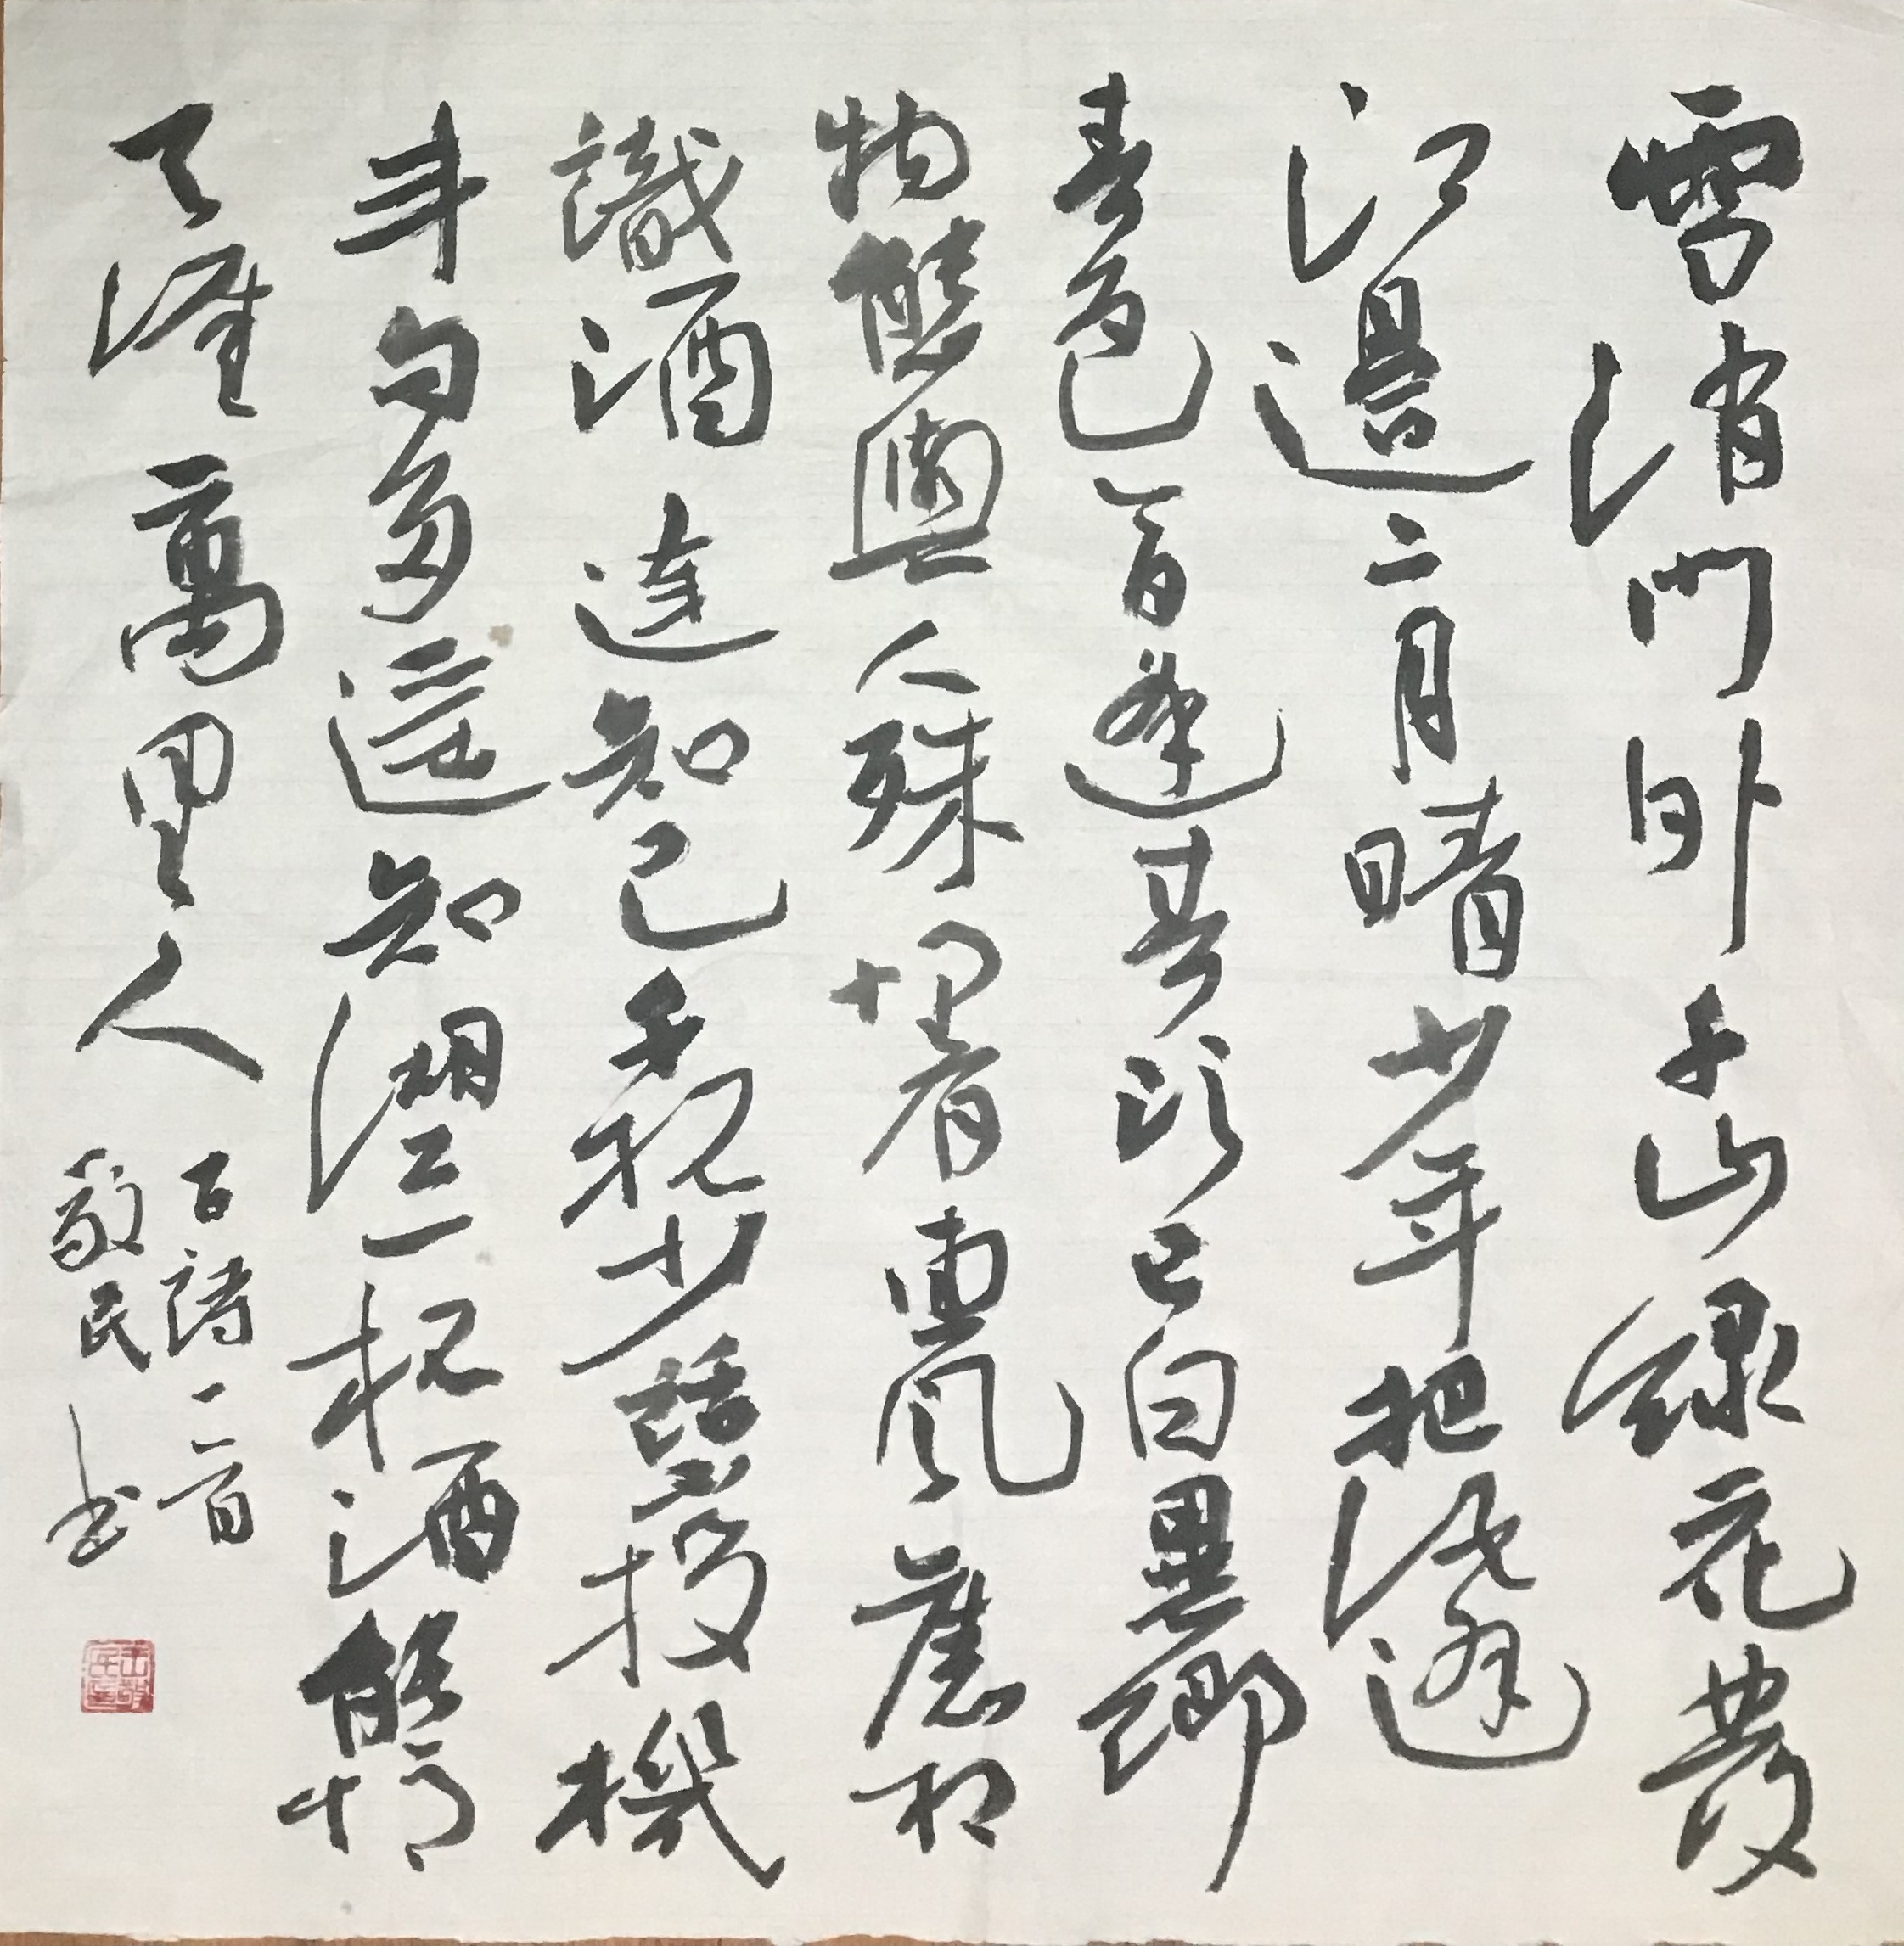 雪消門外千山綠花發
江邊二月晴少年把酒逢
春色今日逢春頭已白異鄉
物態與人殊惟有東風舊相
識酒逢知己千杯少話不投機
半句多遙知湖上一杯酒能憶
天涯萬里人
古詩二首
敬民书
王敬民印